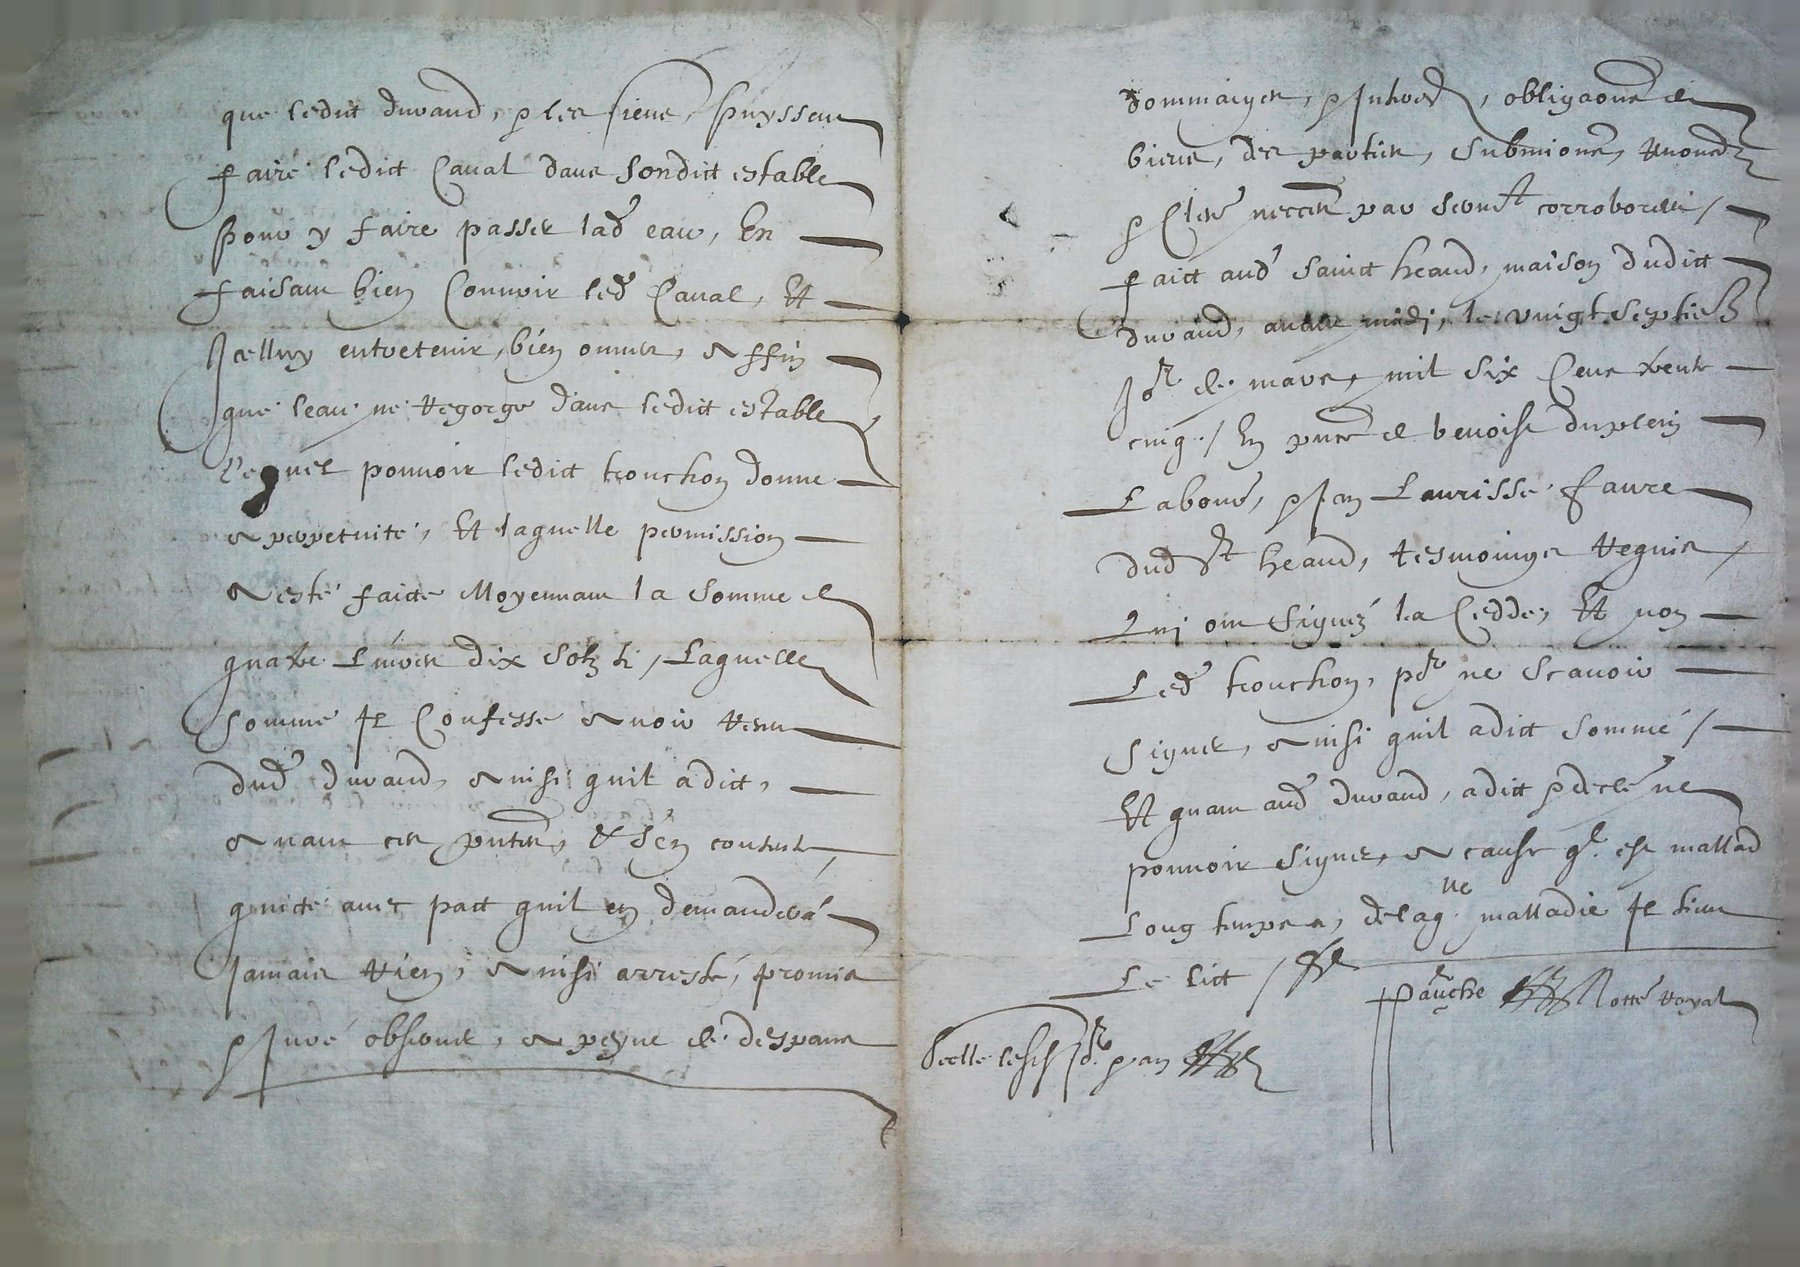 que ledict durand, & les siens, puyssent
faire ledict Canal dans sondict estable
pour y faire passer lad eau, En
faisant bien Couvrir led Canal, Et
Icelluy entretenir, bien ouvert, affin
que leau ne regorge dans ledict estable
lequel pouvoir ledict trouchon donne
a perpetuite, Et laquelle permission
a esté faicte Moyennant la somme de
quatre Livres dix solz tz, Laquelle
somme Il Confesse avoir receu
dud durand, ainsi quil a dict,
avant ces pntes, & s'en contente
quicte avec pact quil en demandera
Jamais rien, ainsi arresté, promis
& Juré observer, a peyne de despans
dommaiges, & Inthrestz, obligaons de
biens, des parties, submions, renonca
& Clses necces par sermt corroborées /
faict aud sainct heand, maison dudict
durand, avant midi, le vingt septies
Jor de mars, mil six Cens trente
cinq / En pnce de benoist duplein
Labour, & Jan Laurisse faure
dud St heand, tesmoings requis /
Qui ont signéz la Cedde, Et non
Led trouchon, pr ne scavoir
signer, ainsi quil a dict sommé /
Et quant aud durand, a dict & declé ne
pouvoir signer, a cause ql est mallad
Long temps a, de laq lle malladie Il tient
Le lict /
notre royal